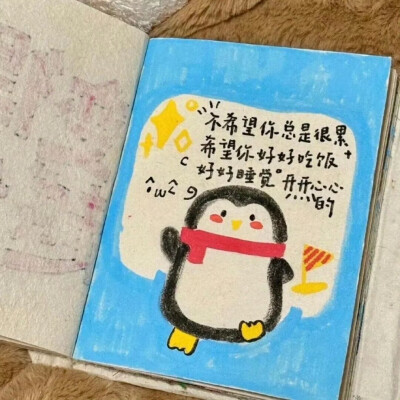 不希望你总是很累
希望你好好吃饭
好好睡觉 开开心心的